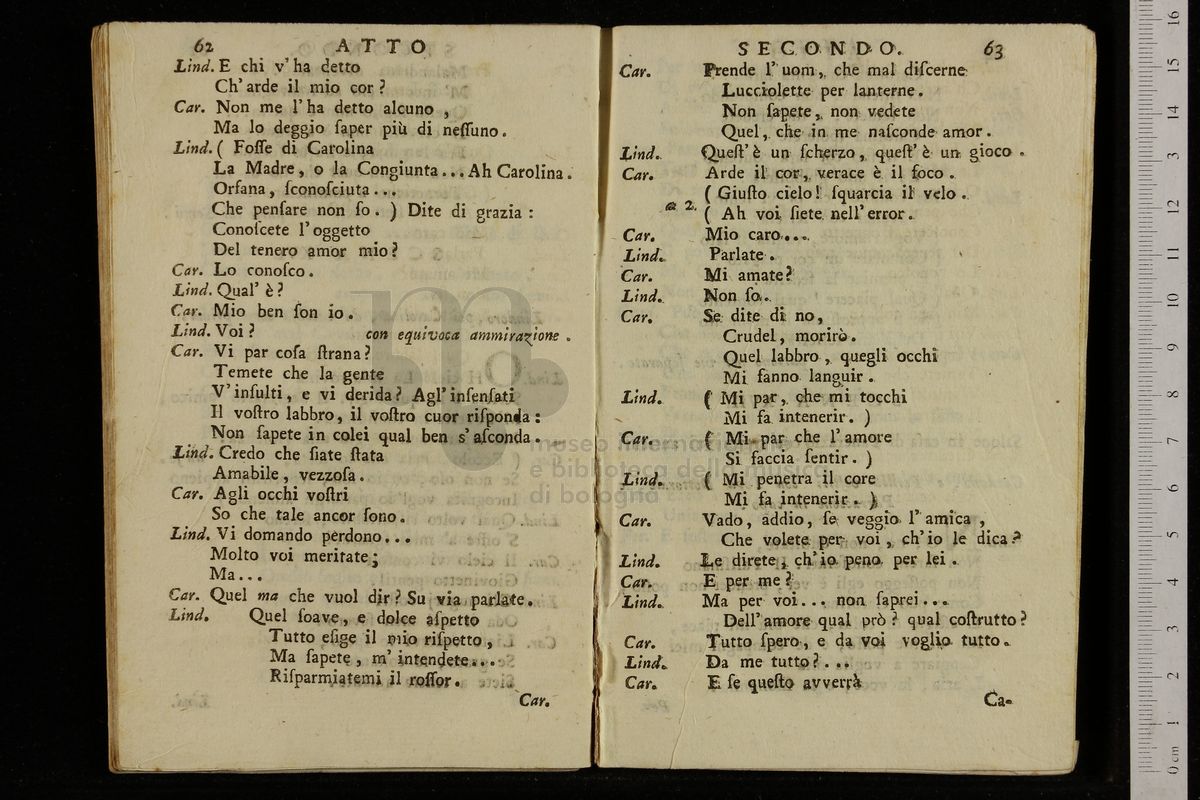 62 ATTO
Lind. E chi v'ha detto
Ch'arde il mio cor?
Car. Non me l'ha detto alcuno,
Ma lo deggio ſaper più di neſſuno.
Lind. ( Foſſe di Carolina
La Madre, o la Congiunta... Ah Carolina.
Orfana, ſconoſciuta...
Che penſare non ſo. ) Dite di grazia:
Conoſcete l'oggetto
Del tenero amor mio?
Car. Lo conoſco.
Lind. Qual' è?
Car. Mio ben ſon io.
Lind. Voi? con equivoca ammirazione.
Car. Vi par coſa ſtrana?
Temete che la gente
V'inſulti, e vi derida? Agl'inſenſati
Il voſtro labbro, il voſtro cuor riſponda:
Non ſapete in colei qual ben s'aſconda.
Lind. Credo che ſiate ſtata
Amabile, vezzoſa.
Car. Agli occhi voſtri
So che tale ancor ſono.
Lind. Vi domando perdono...
Molto voi meritate;
Ma...
Car. Quel ma che vuol dir? Su via parlate.
Lind. Quel ſoave, e dolce aſpetto
Tutto eſige il mio riſpetto,
Ma ſapete, m'intendete...
Riſparmiatemi il roſſor.
Car.
SECONDO. 63
Car. Prende l'uom, che mal diſcerne
Lucciolette per lanterne.
Non ſapete, non vedete
Quel, che in me naſconde amor.
Lind. Queſt'è un ſcherzo, queſt'è un gioco.
Car. Arde il cor, verace è il foco.
a 2. ( Giuſto cielo! ſquarcia il velo.
( Ah voi ſiete nell'error.
Car. Mio caro....
Lind. Parlate.
Car. Mi amate?
Lind. Non ſo..
Car. Se dite di no,
Crudel, morirò.
Quel labbro, quegli occhi
Mi fanno languir.
Lind. ( Mi par, che mi tocchi
Mi fa intenerir. )
Car. ( Mi par che l'amore
Si faccia ſentir. )
Lind. ( Mi penetra il core
Mi fa intenerir. )
Car. Vado, addio, ſe veggio l'amica,
Che volete per voi, ch'io le dica?
Lind. Le direte, ch'io peno per lei.
Car. E per me?
Lind. Ma per voi... non ſaprei...
Dell'amore qual prò? qual coſtrutto?
Car. Tutto ſpero, e da voi voglio tutto.
Lind. Da me tutto?...
Car. E ſe queſto avverrà
Ca-
museo internazionale
e biblioteca della musica
di bologna
0 cm 1 2 3 4 5 6 7 8 9 10 11 12 13 14 15 16